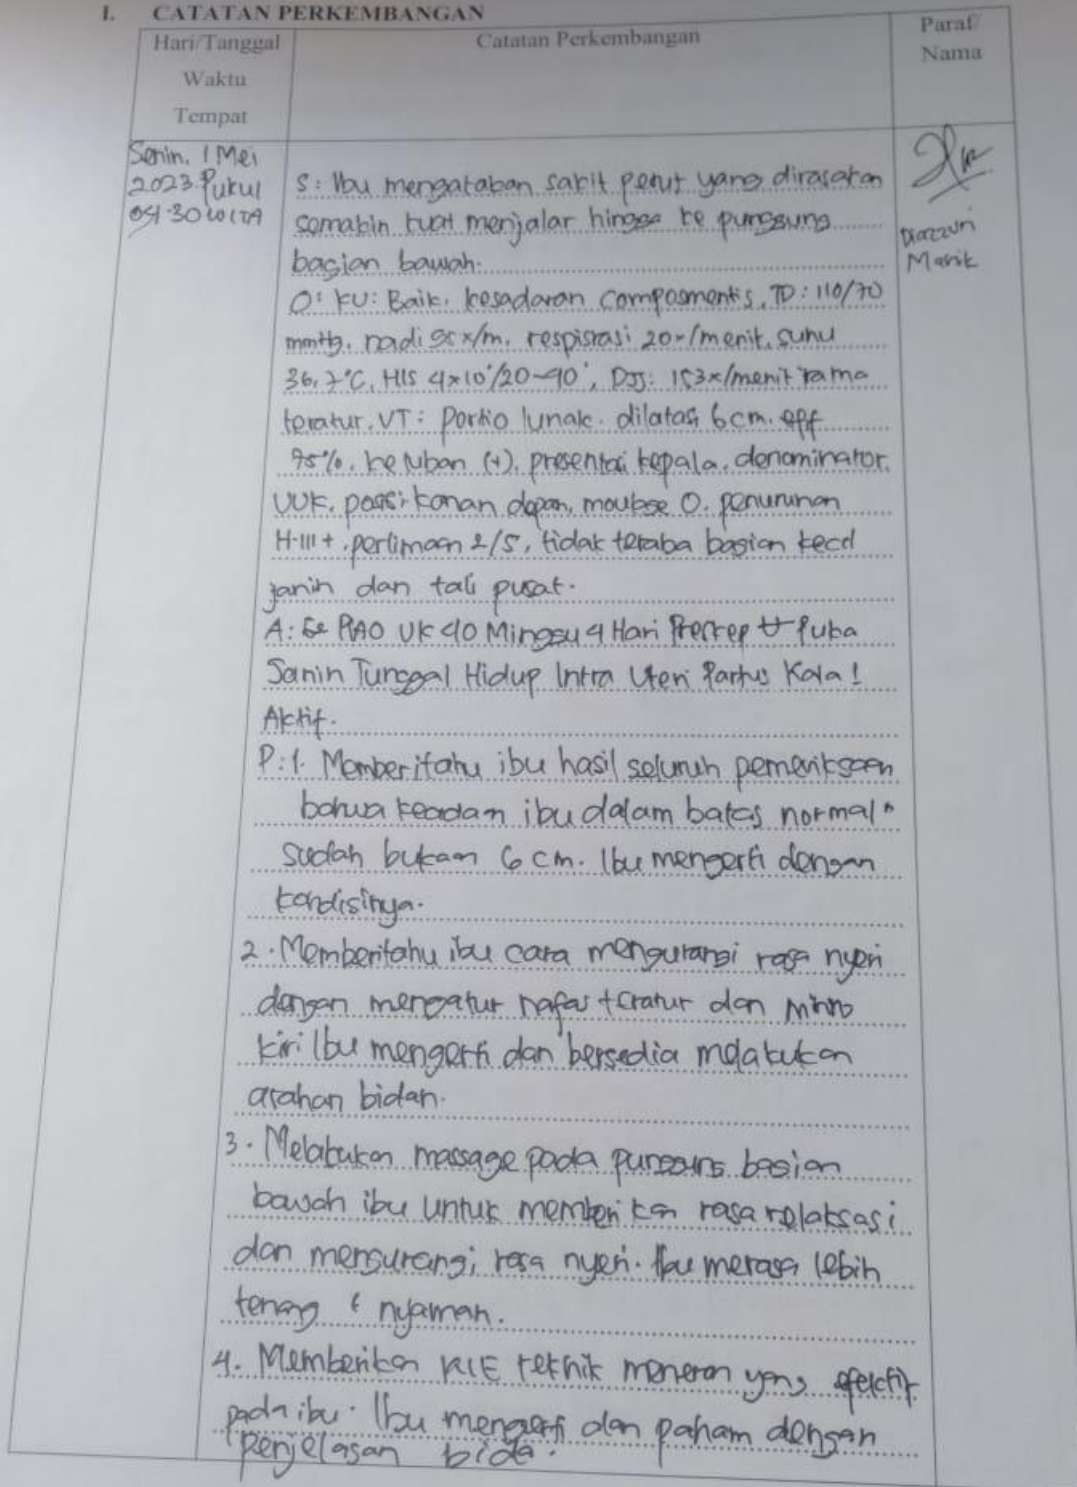 I. CATATAN PERKEMBANGAN
Hari/Tanggal
Waktu
Tempat
Catatan Perkembangan
Paraf/
Nama
Senin, 1 Mei
2023 Pukul
30 WITA
S: Ibu mengatakan sakit perut yang dirasakan
semakin kuat menjalar hingga ke punggung
bagian bawah.
O: KU: Baik, kesadaran composmentis, TD: 110/70
mmHg, nadi x/m, respirasi 20x/menit, suhu
36,7°C, HIS 4x10'/20-40', DJJ: 153x/menit irama
teratur, VT: Portio lunak, dilatasi 6 cm, eff
75%, ketuban (+), presentasi kepala, denominator
UUK, posisi kanan depan, moulase 0, penurunan
H-III+, perlimaan 2/5, tidak teraba bagian kecil
janin dan tali pusat.
A: UK 40 Minggu 4 Hari Preskep Puka
Janin Tunggal Hidup Intra Uteri Partus Kala I
Aktif.
P: 1. Memberitahu ibu hasil seluruh pemeriksaan
bahwa keadan ibu dalam batas normal
sudah bukaan 6 cm. Ibu mengerti dengan
kondisinya.
2. Memberitahu ibu cara mengurangi rasa nyeri
dengan mengatur nafas teratur dan
kiri Ibu mengerti dan bersedia melakukan
arahan bidan.
3. Melakukan massage pada punggung bagian
bawah ibu untuk memberikan rasa relaksasi
dan mengurangi rasa nyeri. Ibu merasa lebih
tenang & nyaman.
4. Memberikan KIE teknik meneran yang efektif
pada ibu. Ibu mengerti dan paham dengan
penjelasan bida.